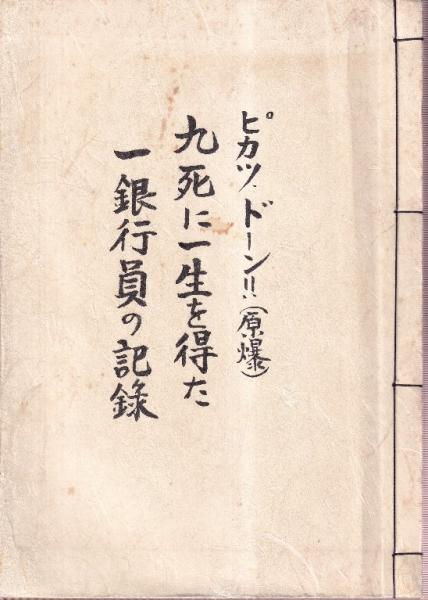 ピカツ、ドーン!!（原爆）
九死に一生を得た
一銀行員の記録